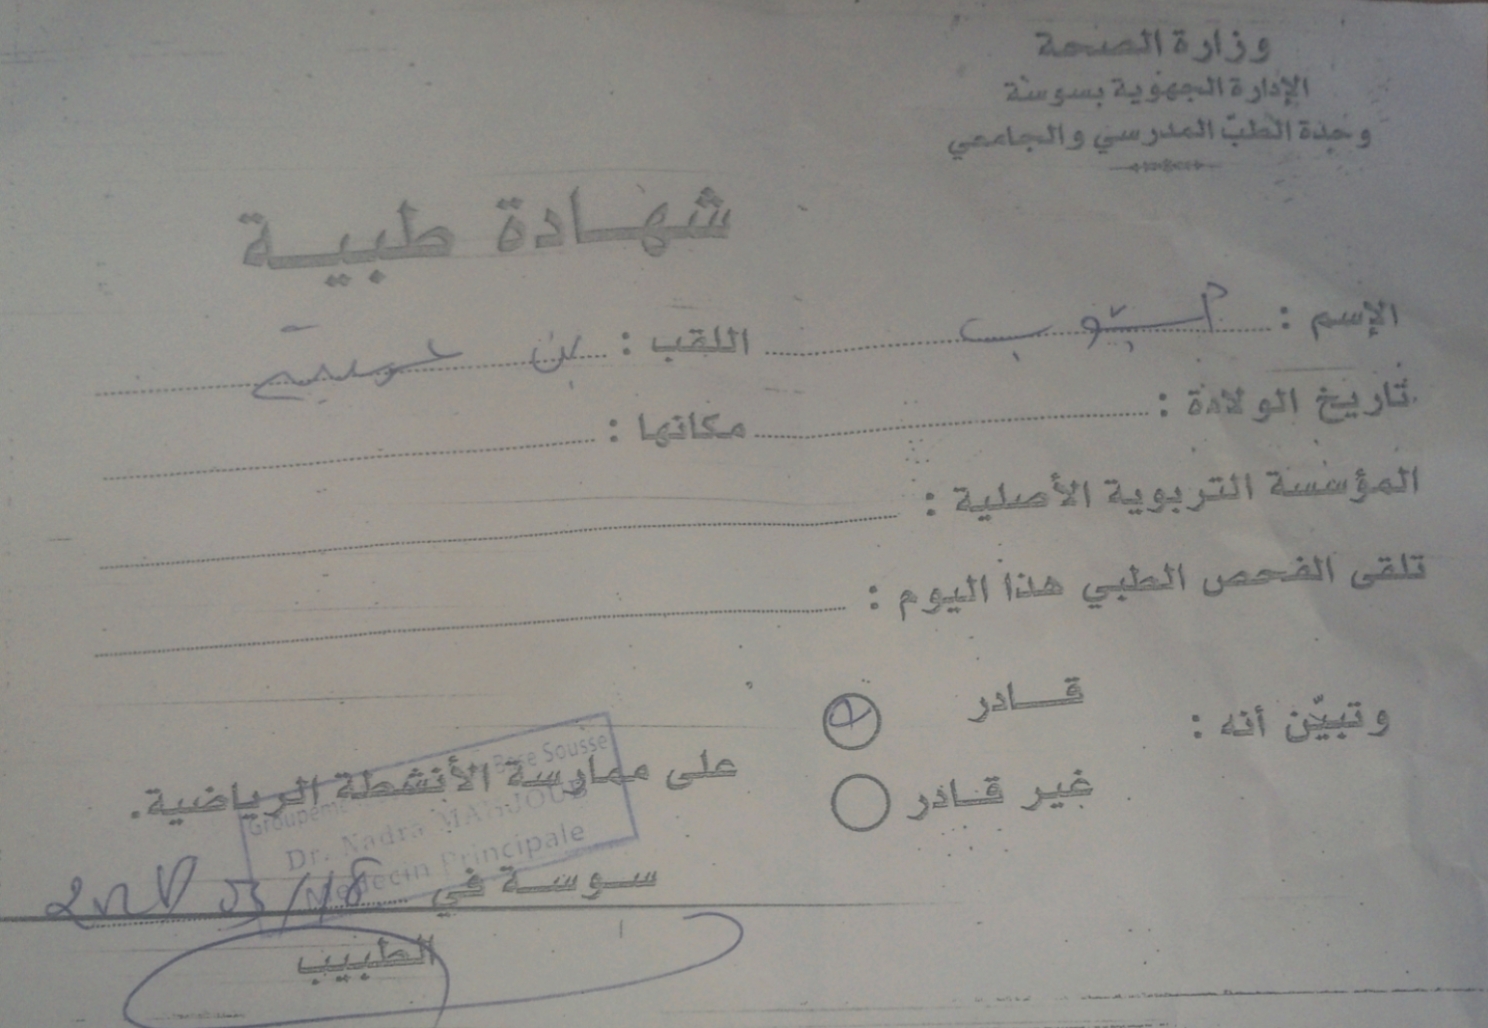 وزارة الصحة
الإدارة الجهوية بسوسة
وحدة الطبّ المدرسي والجامعي
شهادة طبية
الإسم : اللقب : بن
تاريخ الولادة : مكانها :
المؤسسة التربوية الأصلية :
تلقى الفحص الطبي هذا اليوم :
وتبيّن أنه : قادر
غير قادر
على ممارسة الأنشطة الرياضية.
Groupement Base Sousse
Dr. Nadra
Médecin Principale
سوسة في
الطبيب